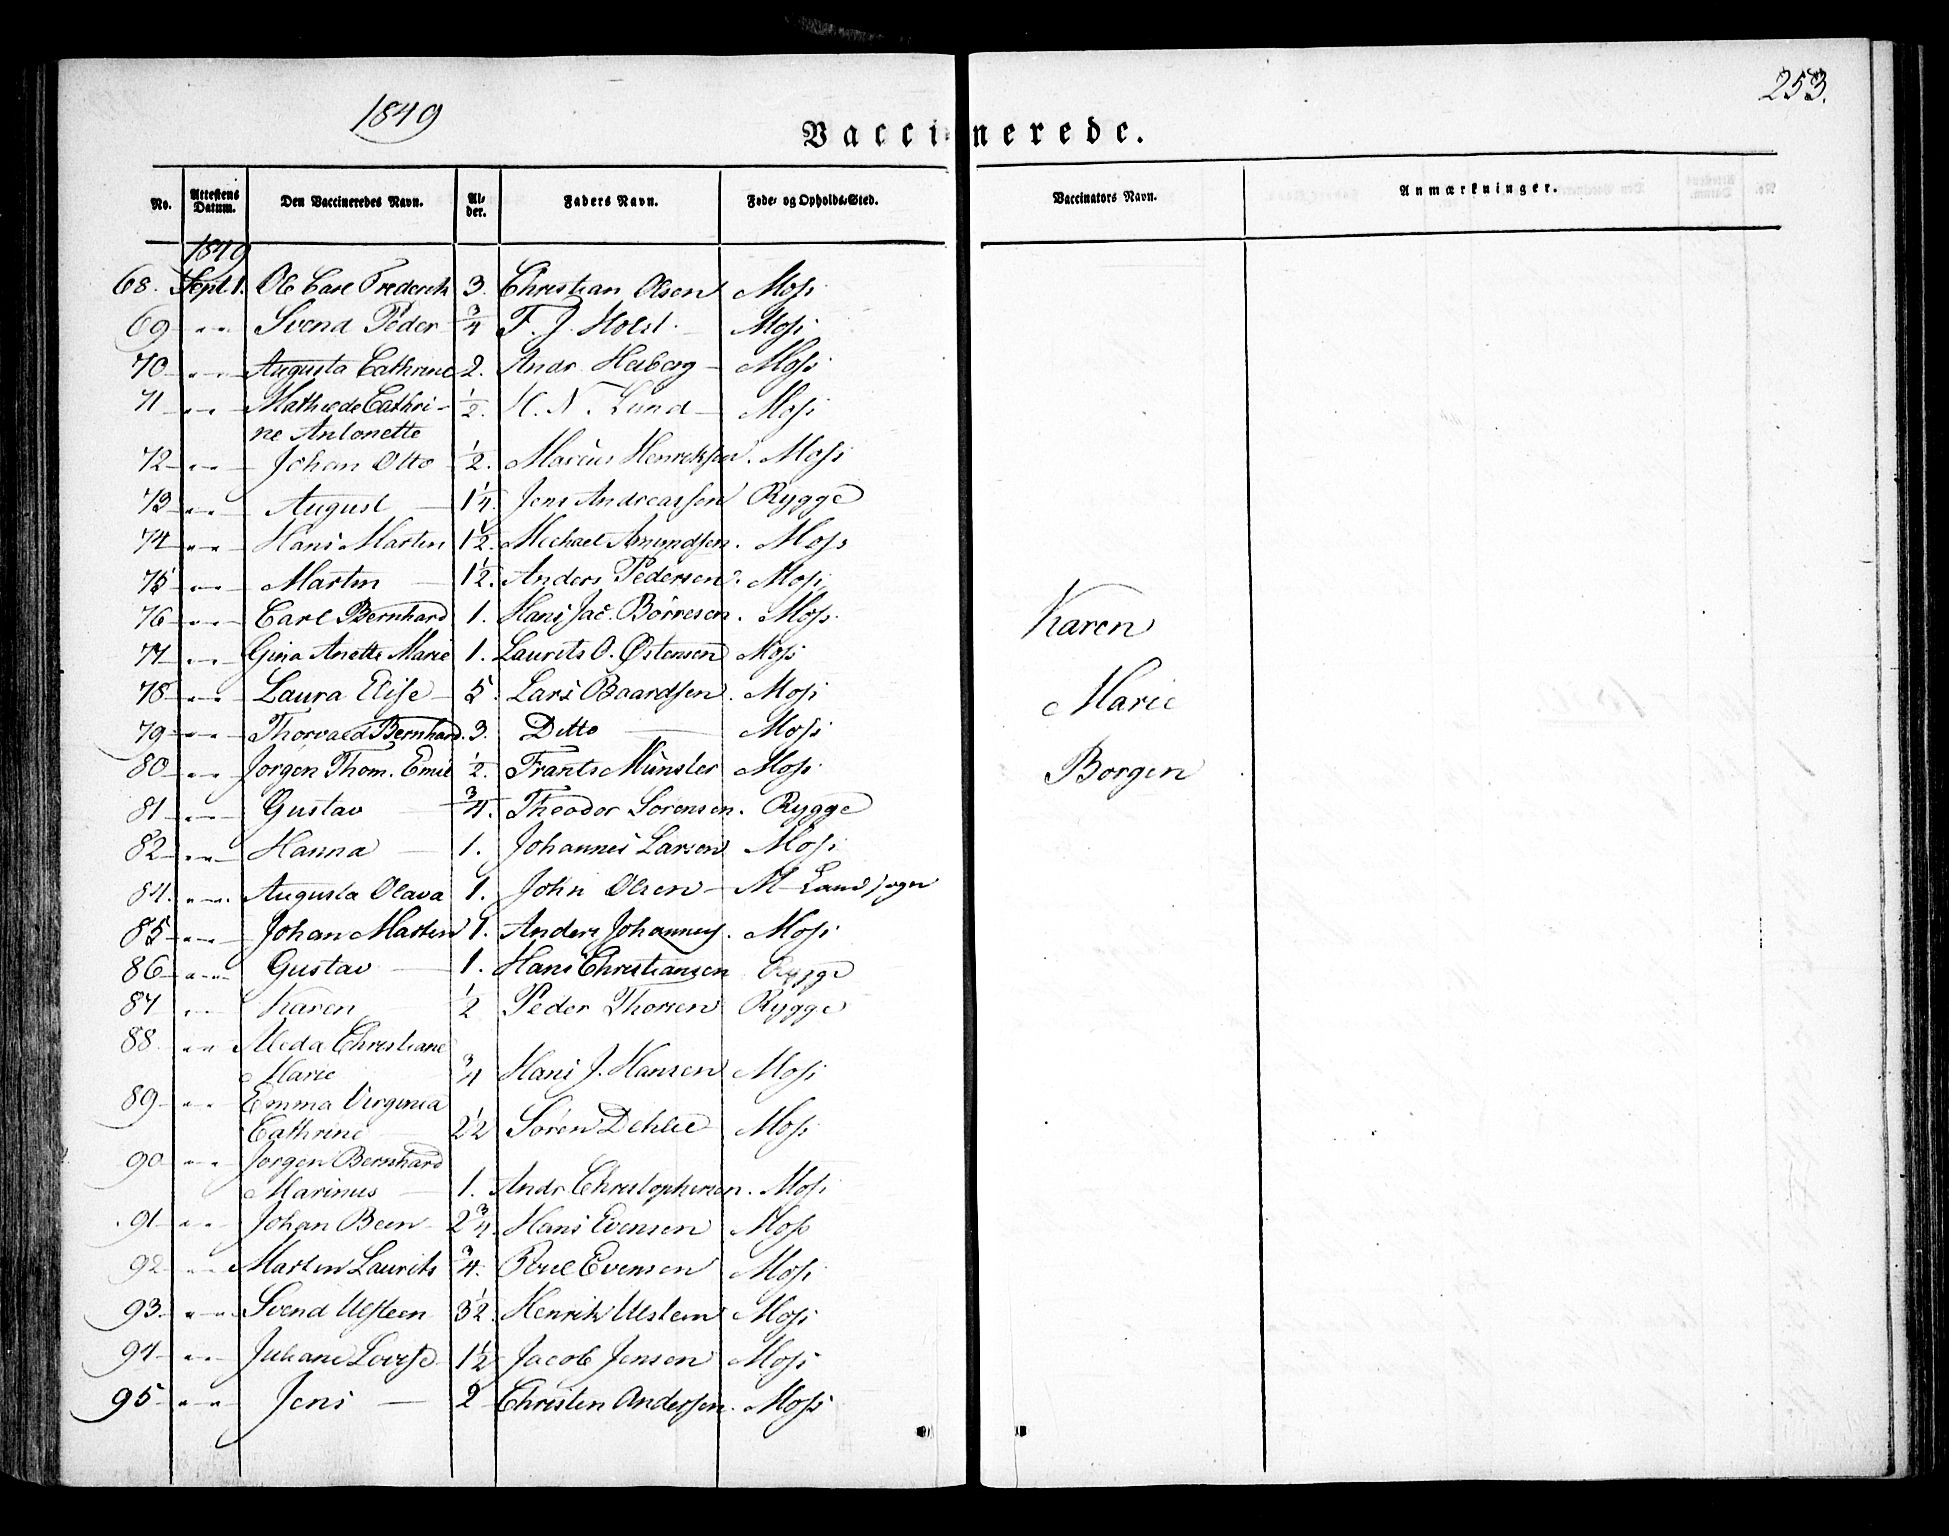 1849
253.
Vaccinerede.
No. Attestens Datum. Den Vaccineredes Navn. Alder. Faders Navn. Føde- og Opholds-Sted. Vaccinators Navn. Anmærkninger.
1849
68. Sept. 1. Ole Carl Frederik 3. Christian Olsen Moss
69 " " Svend Peder 3/4 F. J. Holst. Moss
70 " " Augusta Cathrine 2. Andr Heiberg Moss
71 " " Mathilde Cathri-
ne Antonette 1/2. H. N. Lund Moss
72 " " Johan Otto 1/2. Marius Henriksen. Moss
73 " " August 1 1/4. Jens Andreassen Rygge
74 " " Hans Martin 1 1/2. Michael Amundsen. Moss
75 " " Martin 1 1/2. Anders Pedersen. Moss
76 " " Carl Bernhard 1. Hans Jac. Börresen. Moss Karen
77 " " Gina Anette Marie 1. Laurits O. Østensen Moss
78 " " Laura Elise 5. Lars Baardsen. Moss Marie
79 " " Thorvald Bernhard. 3. Ditto Moss
80 " " Jørgen Thom. Emil 1/2. Frants Münster Moss Borgen
81 " " Gustav 3/4. Theodor Sørensen. Rygge
82 " " Hanna 1. Johannes Larsen Moss
84. " " Augusta Olava 1. John Olsen M Landsogn
85 " " Johan Martin 1. Anders Johannes. Moss
86 " " Gustav 1. Hans Christiansen Rygge
87 " " Karen 1/2 Peder Thorsen Rygge
88. " " Alida Christiane
Marie 3/4 Hans J. Hansen Moss
89 " " Emma Virginia
Cathrine 2 1/2 Sören Dehlie Moss
90 " " Jørgen Bernhard
Marinus 1. Andr Christophersen. Moss
91 " " Johan Been 2 3/4 Hans Evensen Moss
92 " " Martin Laurits 3/4. Poul Evensen Moss
93. " " Svend Ulsteen 3 1/2. Henrik Ulsteen Moss
94 " " Juliane Lovise 1 1/2 Jacob Jensen Moss
95 " " Jens 2 Christen Andersen. Moss